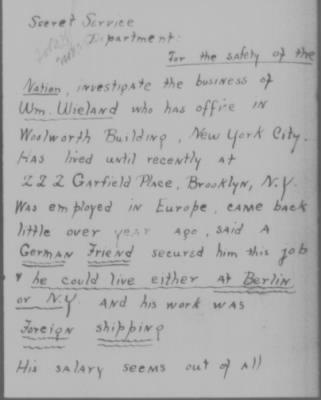 Secret Service
Department:
For the safety of the
Nation, investigate the business of
Wm. Wieland who has office in
Woolworth Building, New York City.
Has lived until recently at
222 Garfield Place, Brooklyn, N.Y.
Was employed in Europe, came back
little over year ago, said a
German Friend secured him this job
& he could live either at Berlin
or N.Y. and his work was
Foreign shipping
His salary seems out of all